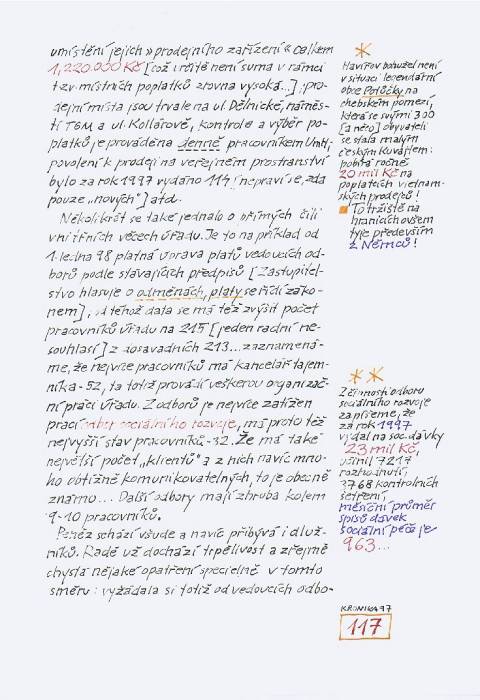 umístění jejich »prodejního zařízení« celkem
1,220.000 Kč [což určitě není suma v rámci
tzv. místních poplatků zrovna vysoká...], pro-
dejní místa jsou trvale na ul. Dělnické, náměs-
tí TGM a ul. Kollárově, kontrole a výběr po-
platků je prováděna denně pracovníkem MÚ,
povolení k prodeji na veřejném prostranství
bylo za rok 1997 vydáno 114 [nepraví se, zda
pouze „nových"] atd.
Několikrát se také jednalo o přímých čili
vnitřních věcech úřadu. Je to na příklad od
1. ledna 98 platná úprava platů vedoucích od-
borů podle stávajících předpisů [Zastupitel-
stvo hlasuje o odměnách, platy se řídí záko-
nem], od téhož data se má též zvýšit počet
pracovníků úřadu na 215 [jeden radní ne-
souhlasí] z dosavadních 213... zaznamená-
me, že nejvíce pracovníků má kancelář tajem-
níka - 52, ta totiž provádí veškerou organizač-
ní práci úřadu. Z odborů je nejvíce zatížen
prací odbor sociálního rozvoje, má proto též
nejvyšší stav pracovníků - 32. Že má také
největší počet „klientů" a z nich navíc mno-
ho obtížně komunikovatelných, to je obecně
známo... Další odbory mají zhruba kolem
9-10 pracovníků.
Peněz schází všude a navíc přibývá i dluž-
níků. Radě už dochází trpělivost a zřejmě
chystá nějaké opatření specielně v tomto
směru: vyžádala si totiž od vedoucích odbo-
*
Havířov bohužel není
v situaci legendární
obce Potůčky na
chebském pomezí,
která se svými 300
[a něco] obyvateli
se stala malým
českým Kuvajtem:
pobírá ročně
20 mil Kč na
poplatcích vietnam-
ských prodejců!
To tržiště na
hranicích ovšem
tyje především
z Němců!
* *
Z činnosti odboru
sociálního rozvoje
zapíšeme, že
za rok 1997
vydal na soc. dávky
23 mil Kč,
učinil 7217
rozhodnutí,
3768 kontrolních
šetření,
měsíční průměr
spisů dávek
sociální péče je
963...
KRONIKA 97
117